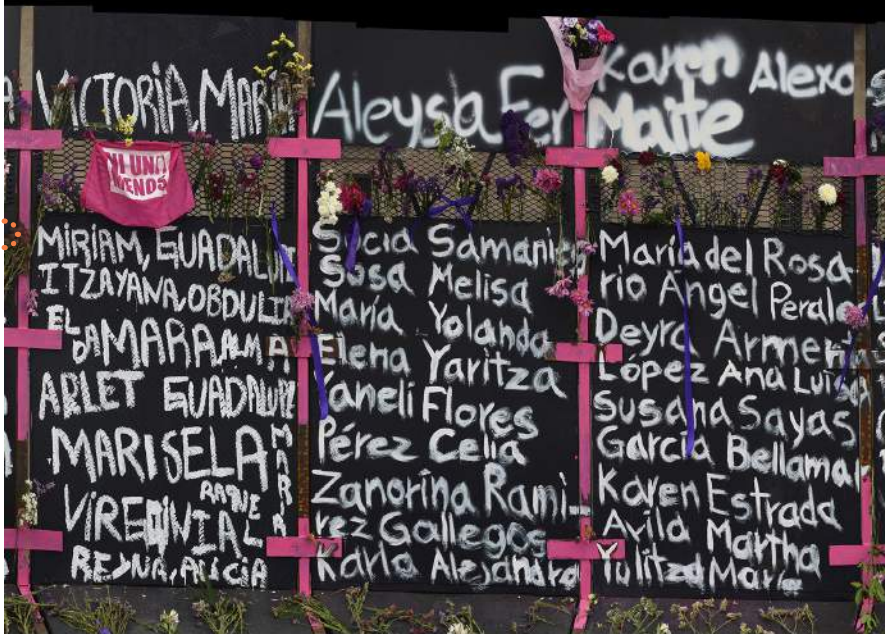 VICTORIA, MARIA
Aleysla Fer
Karen
Maite
Alexa
NI UNA
MENOS
MIRIAM, GUADALUPE
ITZAYANA, OBDULIA
EL
DAMARA, ALMA
ARLET GUADALUPE
MARISELA
MAR
RAQUEL
VIRGINIA
REYNA, ALICIA
Socia Samanieg
Sosa Melisa
María Yolanda
Elena Yaritza
Yaneli Flores
Pérez Celia
Zanorina Rami-
rez Gallegos
Karla Alejandra
María del Rosa
rio Angel Perale
Deyra Armenta
López Ana Luisa
Susana Sayas
García Bellamar
Karen Estrada
Avila Martha
Yulitza María